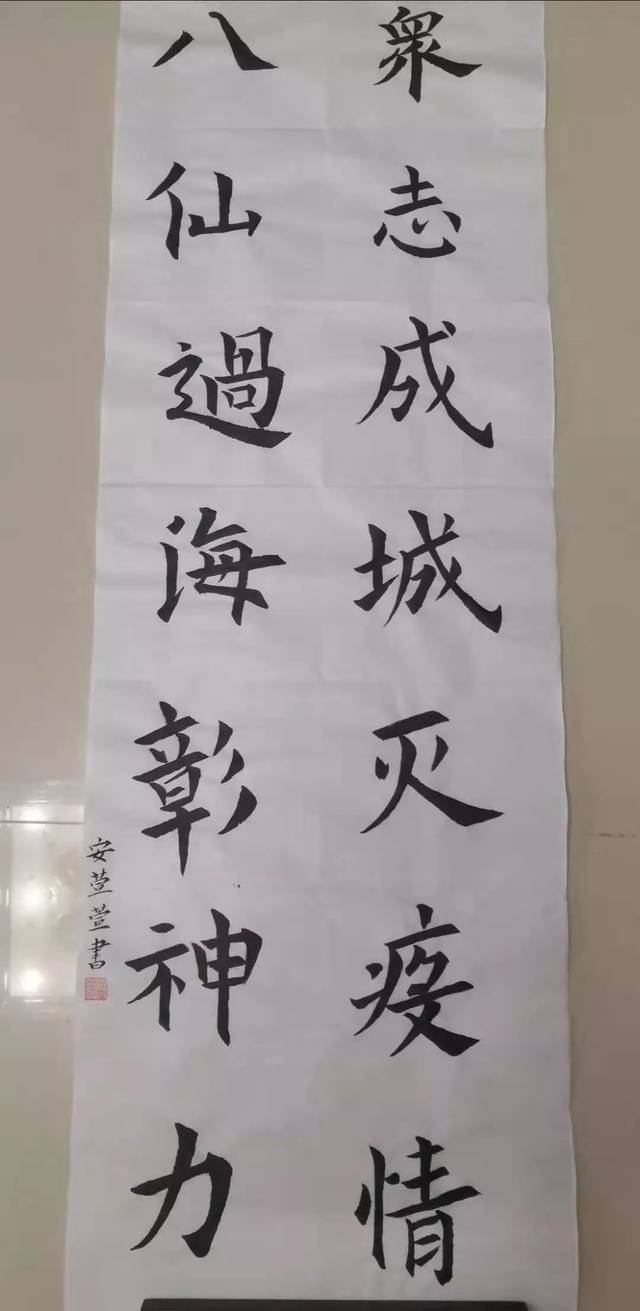 眾志成城灭疫情
八仙過海彰神力
安萱萱書